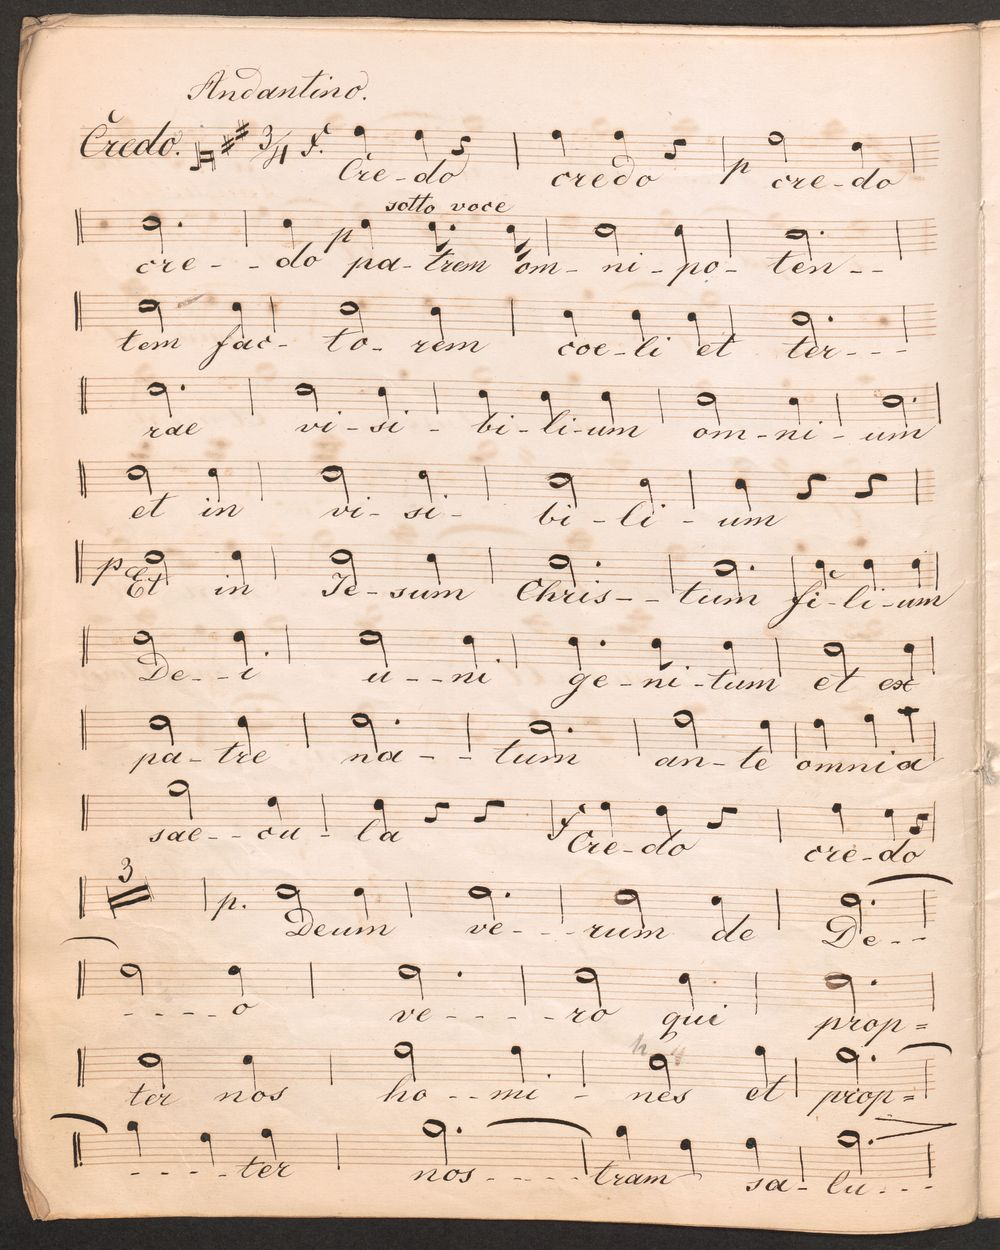 Andantino.
Credo. 3/4 f.
Cre-do credo p cre-do
sotto voce
cre - - do p pa-trem om-ni-po-ten--
tem fac-to-rem coe-li et ter---
rae vi-si-bi-li-um om-ni-um
et in vi-si-bi-li-um
p Et in Je-sum Chris--tum fi-li-um
De--i u--ni ge-ni-tum et ex
pa-tre na--tum an-te omnia
sae--cu-la f Cre-do cre-do
3 p. Deum ve---rum de De--
----o ve----ro qui prop=
ter nos ho--mi-nes et prop=
----ter nos----tram sa-lu---